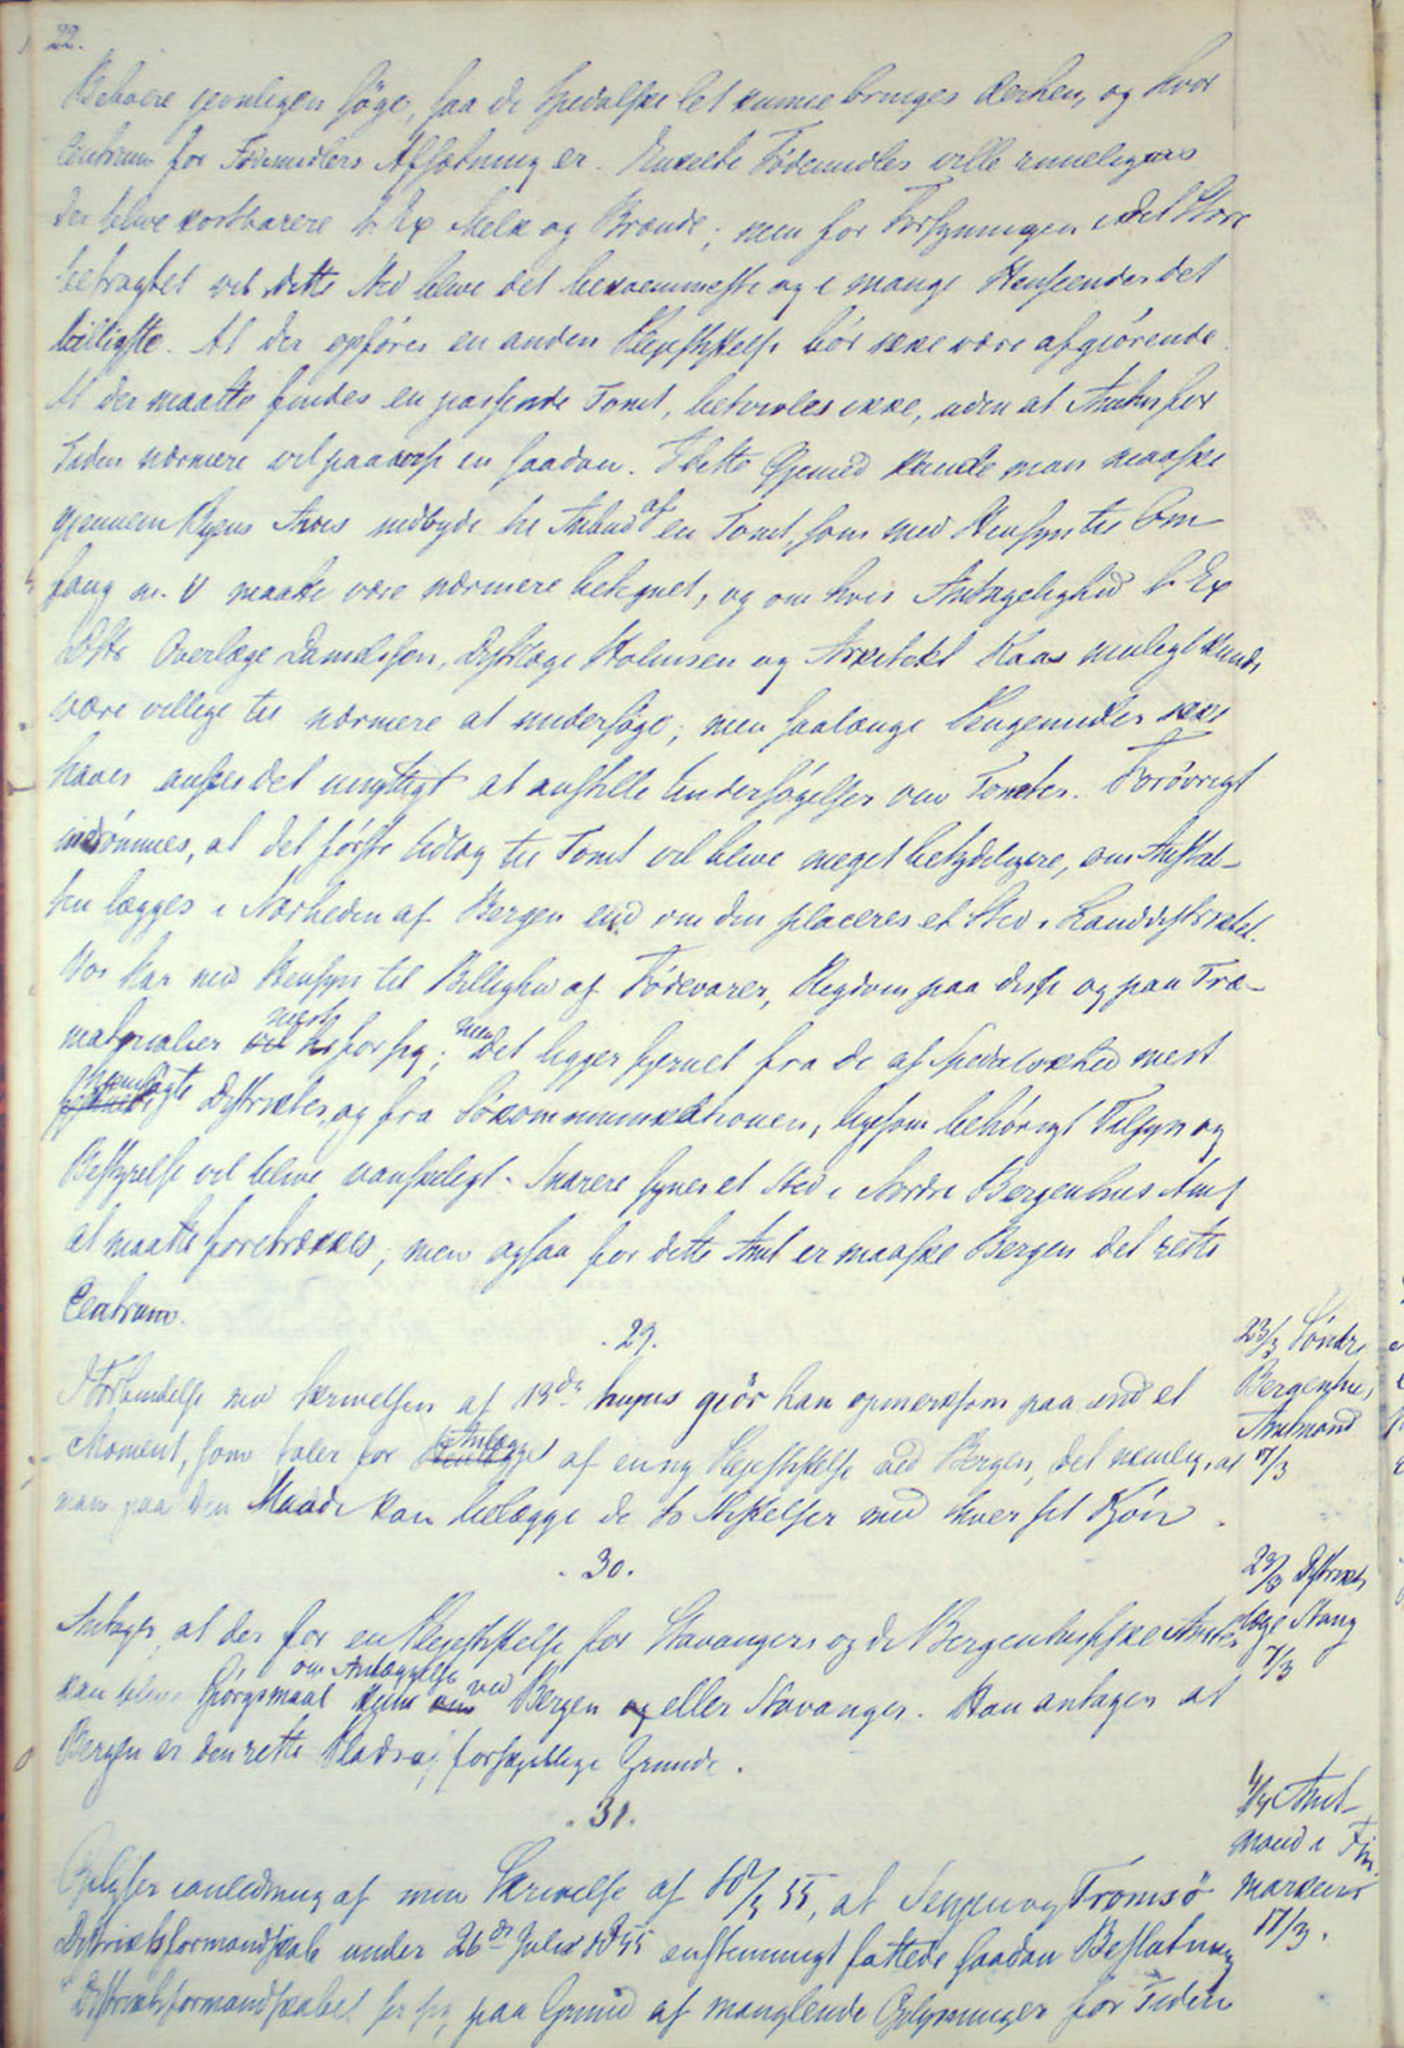 22.
Beboere jevnligen søge, saa de Spedalske let kunne bringes derhen, og hvor
Centrum for Fødemidlers Afsætning er. Enkelte Fødemidler ville rimeligvis
der blive kostbarere t. Ex Melk og Brænde; men for Forsyningen i det Hele
betragtet vil dette Sted blive det bekvemmeste og i mange Henseender det
billigste. At der opføres en anden Pleiestiftelse bør ikke være afgiørende.
At der maatte findes en passende Tomt, betvivles ikke, uden at Amtet for
Tiden nærmere vil paavise en saadan. I dette Øiemed kunde man maaske
gjennem Byens Avis indbyde til Anbud af en Tomt, som med Hensyn til Om-
fang m. v maatte være nærmere betegnet, og om hvis Antagelighed t. Ex
Overlæge Danielssen, Distrlæge Holmsen og Arkitekt Kaas muligt kunde
være villige til nærmere at undersøge; men saalænge Pengemidler ikke
haves ansees det unyttigt at anstille Undersøgelser om Tomter. Forøvrigt
indrømmes, at det første Udlæg til Tomt vil blive meget betydeligere, om Anstal-
ten lægges i Nærheden af Bergen end om den placeres et Sted i Landdistriktet.
Vos har med Hensyn til Billighed af Fødevarer, Rigdom paa disse og paa Træ-
materialier mest for sig; men det ligger fjernet fra de af Spedalskhed mest
hjemsøgte Distrikter, og fra Søkommunikationen, ligesom behørigt Tilsyn og
Bestyrelse vil blive vanskeligt. Snarere synes et Sted i Nordre Bergenhus Amt
at maatte foretrækkes; men ogsaa for dette Amt er maaske Bergen det rette
Centrum.
. 29.
23/3 Söndre
Bergenhus
Amtmand
17/3
I Forbindelse med Skrivelsen af 13de hujus giör han opmerksom paa end et
Moment, som taler for Anlægget af en ny Pleiestiftelse ved Bergen, det nemlig, at
man paa den Maade kan belægge de to Stiftelser med hver sit Kjön.
. 30.
23/3 Distrikts
læge Stang
7/3
Antager, at der for en Pleiestiftelse for Stavangers og de Bergenhusiske Amter
kan blive Spörgsmaal om Anlæggelse ved Bergen eller Stavanger. Han antager at
Bergen er den rette Plads af forskjellige Grunde.
. 31.
4/4 Amt-
mand i Fin-
marken
17/3.
Oplyser i anledning af min Skrivelse af 10/3 55, at Senjen og Tromsö
Distriktsformandskab under 26de Juli 1855 enstemmigt fattede saadan Beslutning
"Distriktsformandskabet ser sig paa Grund af manglende Oplysninger for Tiden